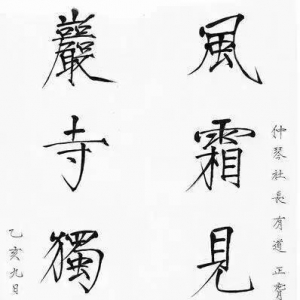 仲琴社長有道正
風霜見
巖寺獨
乙亥九月